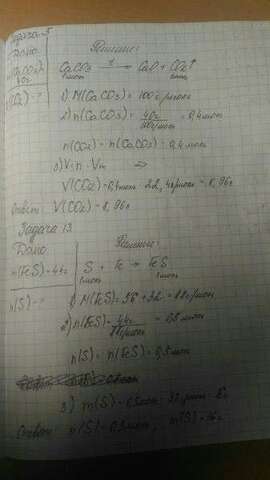 Задача 5
Дано Решение:
m(CaCO3)= 40г
CaCO3 t→ CaO + CO2↑
1моль 1моль
V(CO2) - ?
1) M(CaCO3) = 100г/моль
2) n(CaCO3) = 40г / 100г/моль = 0,4моль
n(CO2) = n(CaCO3) = 0,4моль
3) V = n · Vm ⇒
V(CO2) = 0,4моль · 22,4л/моль = 8,96л
Ответ: V(CO2) = 8,96л
Задача 13
Дано Решение:
m(FeS) - 44г
S + Fe → FeS
1моль 1моль
n(S) - ?
1) M(FeS) = 56 + 32 = 88г/моль
2) n(FeS) = 44г / 88г/моль = 0,5моль
n(S) = n(FeS) = 0,5моль
3) m(S) = 0,5моль · 32г/моль = 16г
Ответ: n(S) = 0,5моль, m(S) = 16г